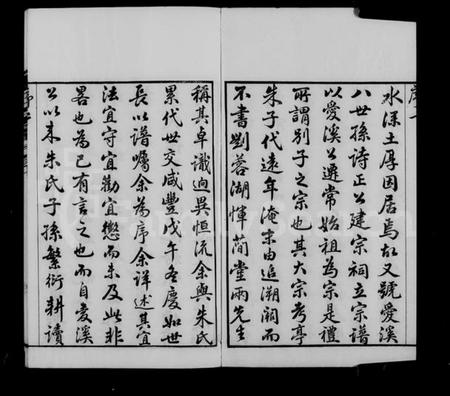 水深土厚因居焉故又號愛溪
八世孫詩正公建宗祠立宗譜
以愛溪公遷常始祖為宗是禮
所謂別子之宗也其大宗考亭
朱子代遠年淹末由追溯闕而
不書劉蓉湖惲簡堂兩先生
稱其卓識迥異恒流余與朱氏
累代世交咸豐戊午冬慶如世
長以譜囑余為序余詳述其宜
法宜守宜勸宜懲而未及此非
畧也為已有言之也而自愛溪
公以來朱氏子孫繁衍耕讀